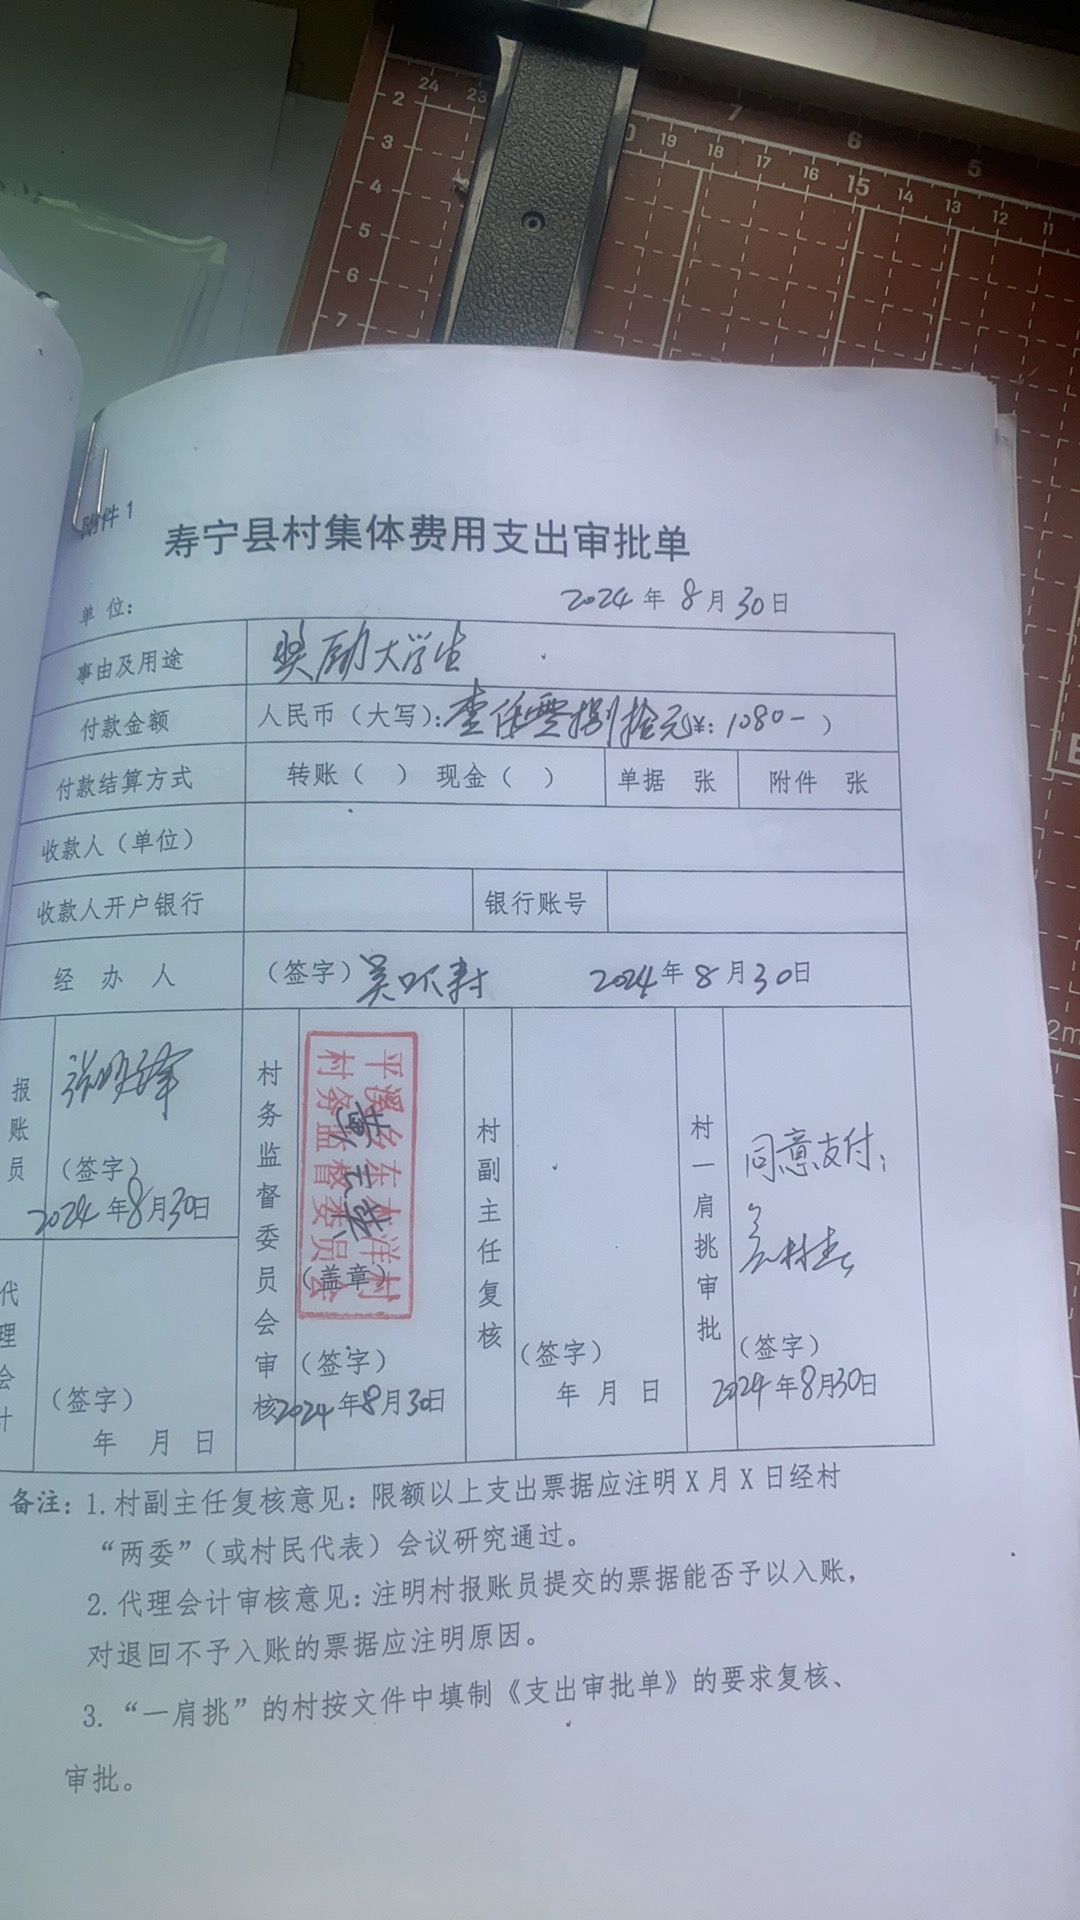 24 23
2
3
4
5
6
7
7 6 5
19 18 17 16 15 14 13 12 11
附件1
寿宁县村集体费用支出审批单
单 位: 2024年8月30日
事由及用途 奖励大学生
付款金额 人民币（大写）:壹仟零捌拾元¥:1080-）
付款结算方式 转账（ ） 现金（ ） 单据 张 附件 张
收款人（单位）
收款人开户银行 银行账号
经 办 人 （签字） 2024年8月30日
报账员 （签字） 2024年8月30日
代理会计 （签字） 年 月 日
村务监督委员会审核 （盖章） （签字） 2024年8月30日
平溪乡东木洋村
村务监督委员会
村副主任复核 （签字） 年 月 日
村一肩挑审批 同意支付; （签字） 2024年8月30日
备注: 1.村副主任复核意见: 限额以上支出票据应注明X月X日经村
“两委”（或村民代表）会议研究通过。
2.代理会计审核意见: 注明村报账员提交的票据能否予以入账，
对退回不予入账的票据应注明原因。
3.“一肩挑”的村按文件中填制《支出审批单》的要求复核、
审批。